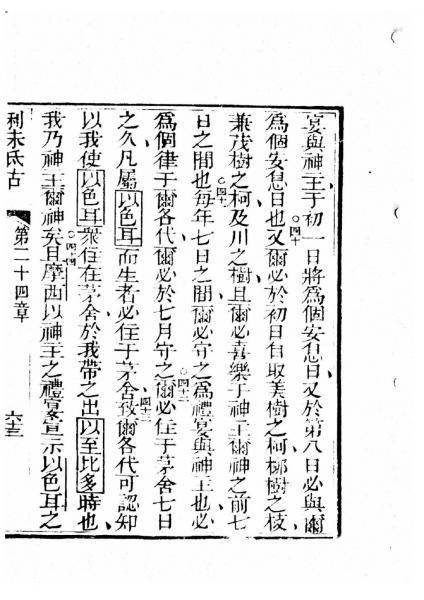 宴與神主于初一日將爲個安息日又於第八日必與爾
爲個安息日也○四十又爾必於初日自取美樹之柯梛樹之枝
兼茂樹之柯及川之樹且爾必喜樂于神主爾神之前七
日之間也○四一每年七日之間爾必守之爲禮宴與神主也必
爲個律于爾各代爾必於七月守之○四二爾必住于茅舍七日
之久凡屬以色耳而生者必住于茅舍○四三致爾各代可認知
以我使以色耳衆住在茅舍於我帶之出以至比多時也
我乃神主爾神矣○四四且摩西以神主之禮宴宣示以色耳之
利未氏古 第二十四章 六十三